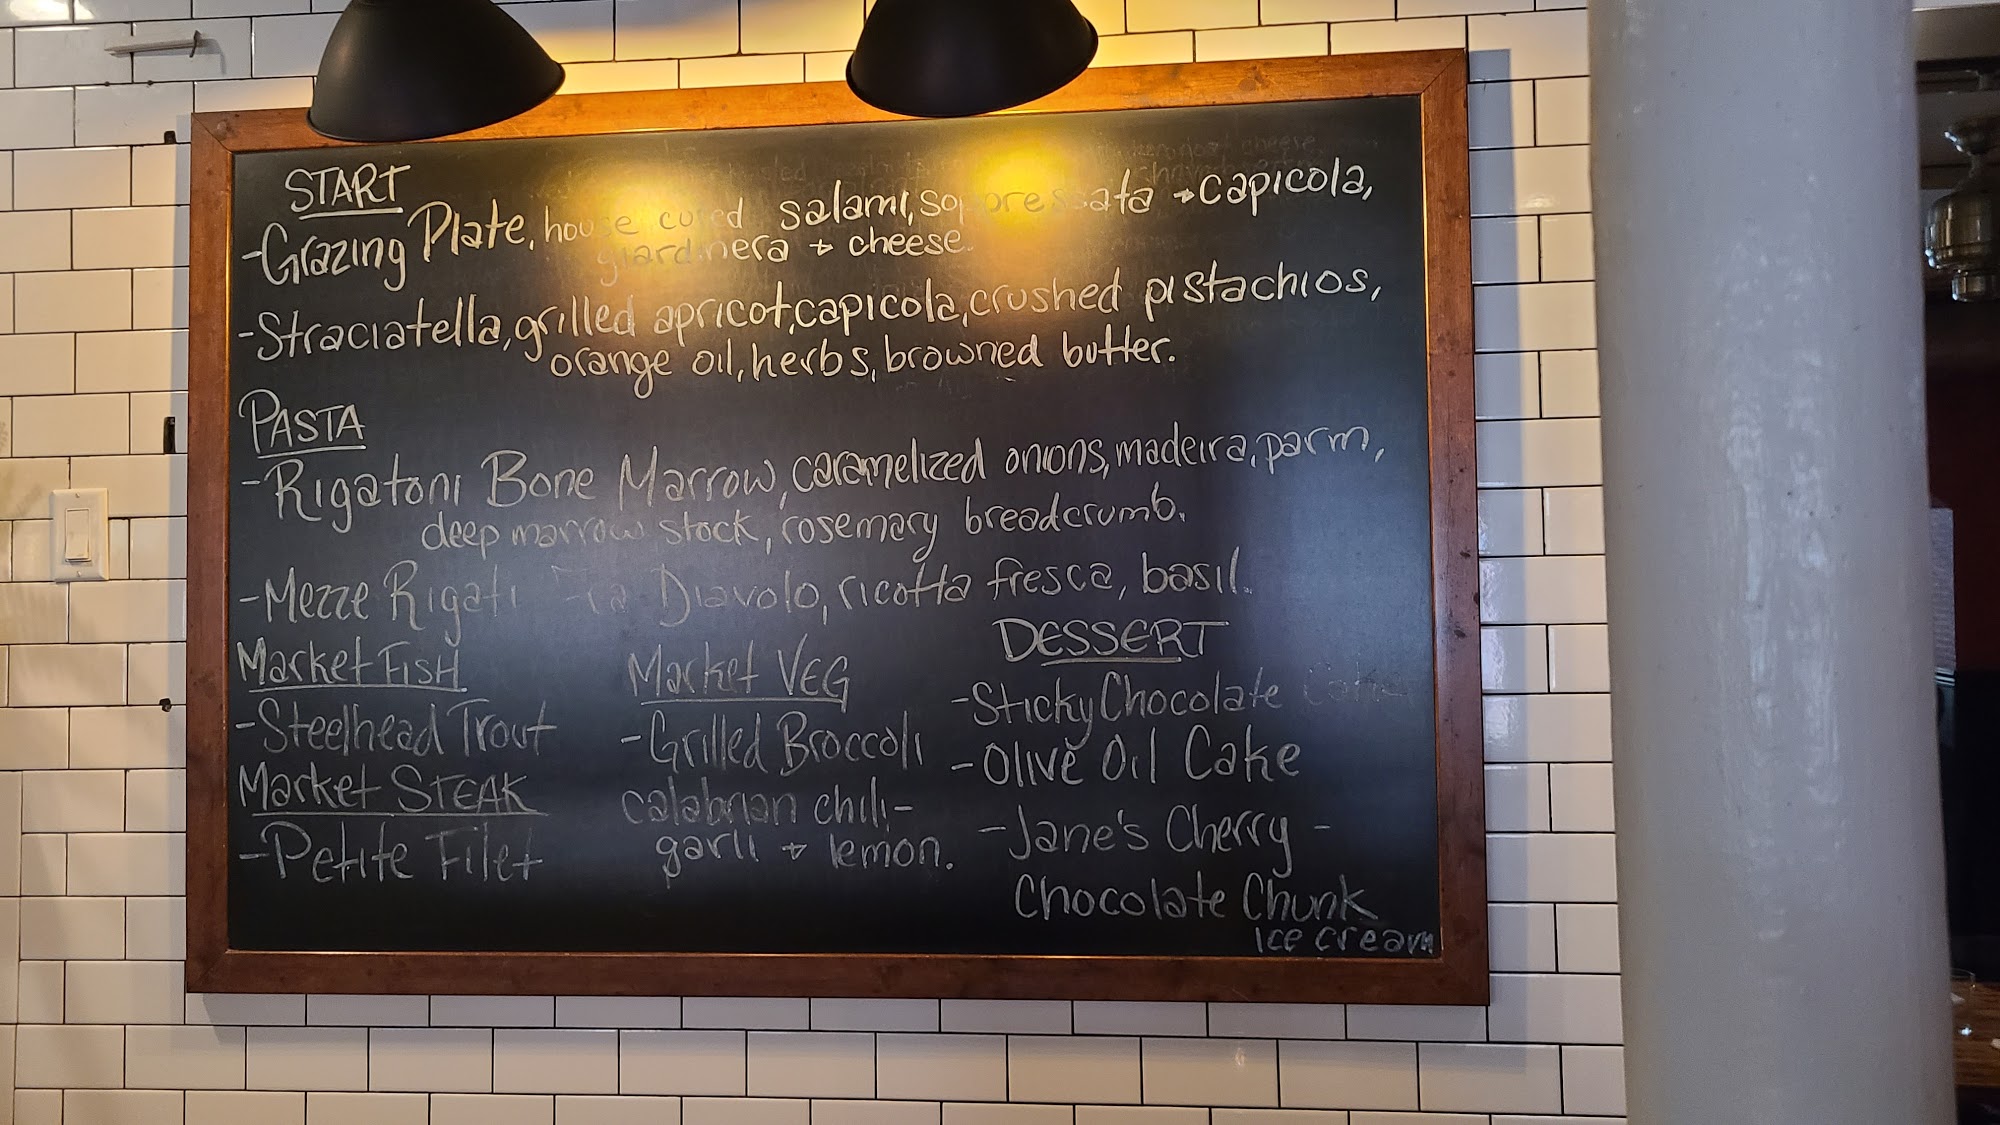 START
-Grazing Plate, house cured salami, soppressata + capicola,
giardinera + cheese.
-Straciatella, grilled apricot, capicola, crushed pistachios,
orange oil, herbs, browned butter.
PASTA
-Rigatoni Bone Marrow, caramelized onions, madeira, parm,
deep marrow stock, rosemary breadcrumb.
-Mezze Rigati Fra Diavolo, ricotta fresca, basil.
Market Fish
-Steelhead Trout
Market STEAK
-Petite Filet
Market VEG
-Grilled Broccoli
calabrian chili-
garli + lemon.
DESSERT
-Sticky Chocolate
-Olive Oil Cake
-Jane's Cherry -
Chocolate Chunk
ice cream